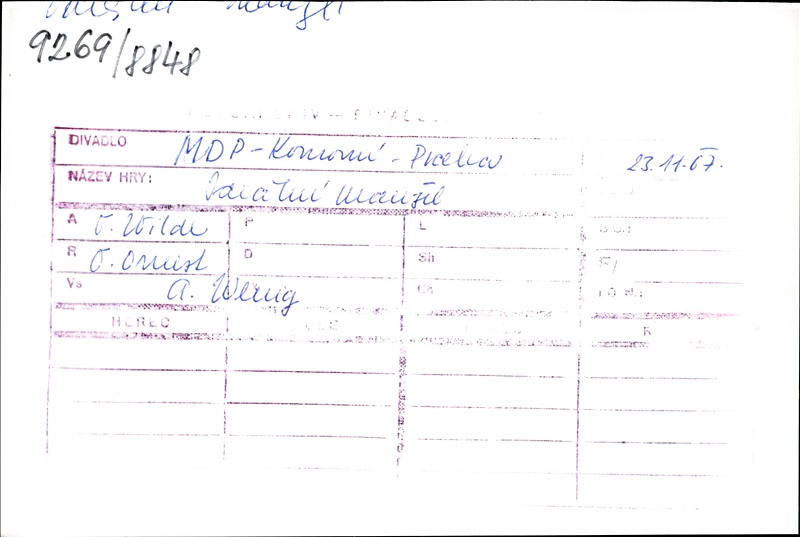 9269/8848
DIVADLO MDP-Komorní-Praha 23.11.67.
NÁZEV HRY: Ideální manžel
A O. Wilde P L
R O. Ornest D Sh
Vs A. Wenig Ch
HEREC R